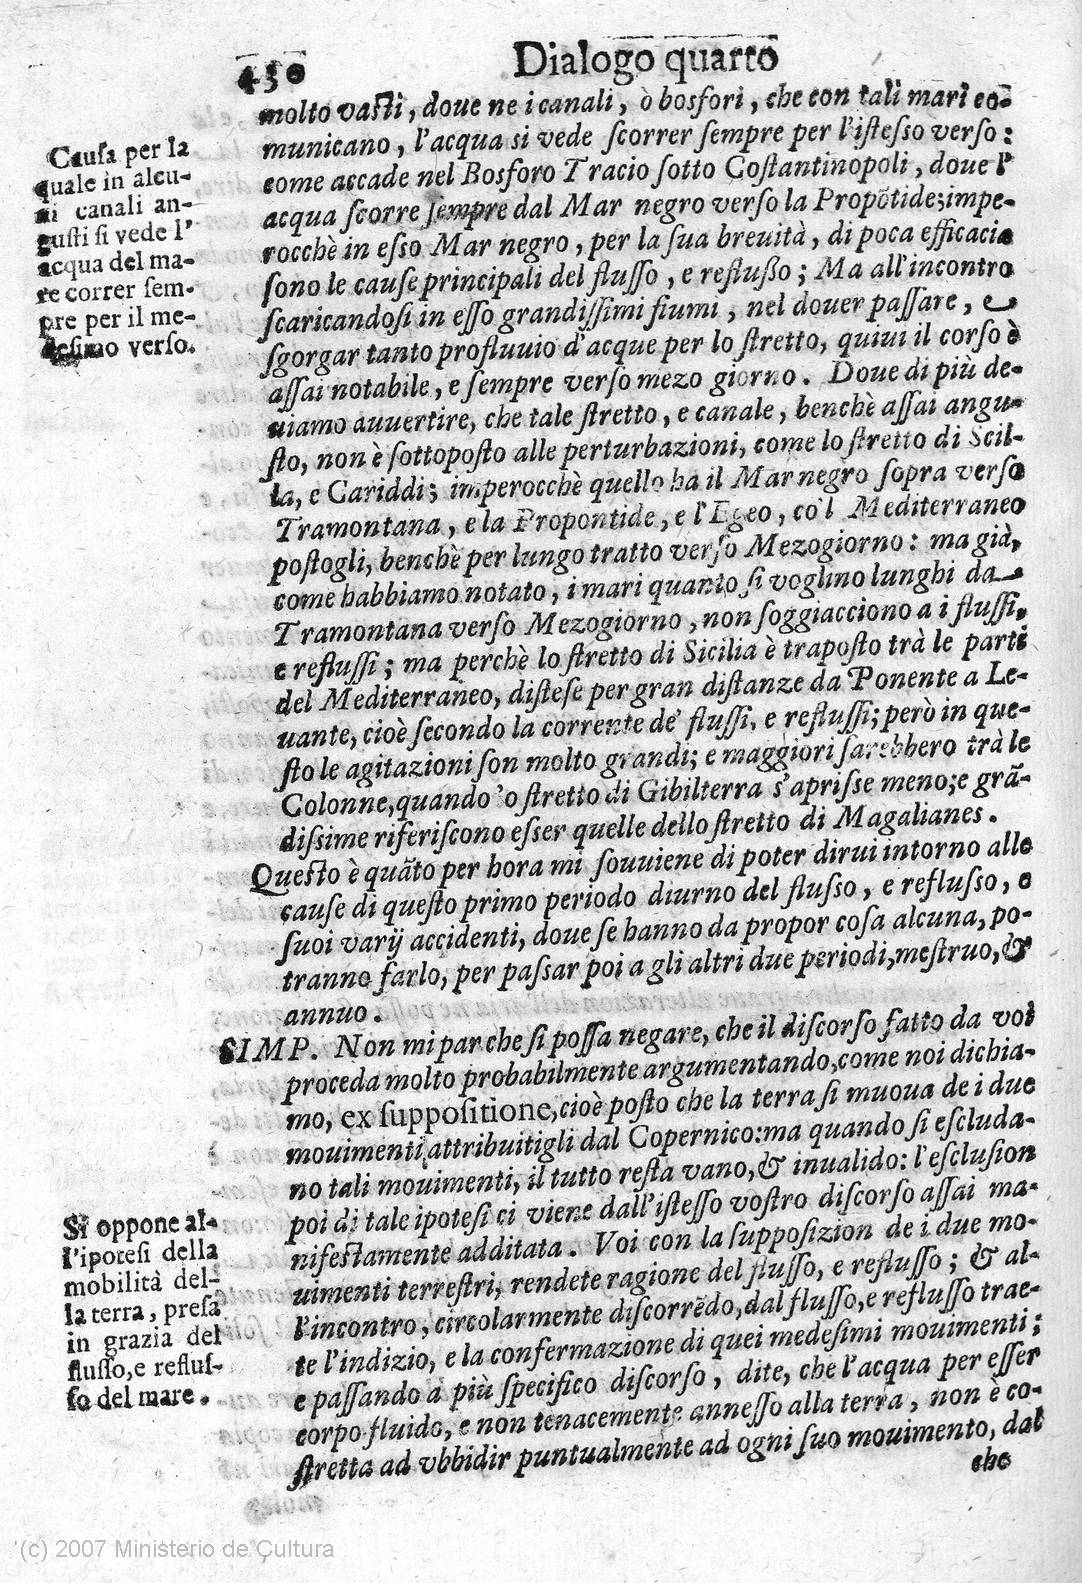 430
Dialogo quarto
molto vasti, doue ne i canali, ò bosfori, che con tali mari co-
municano, l'acqua si vede scorrer sempre per l'istesso verso:
come accade nel Bosforo Tracio sotto Costantinopoli, doue l'
acqua scorre sempre dal Mar negro verso la Propõtide; impe-
rocchè in esso Mar negro, per la sua breuità, di poca efficacia
sono le cause principali del flusso, e reflusso; Ma all'incontro
scaricandosi in esso grandissimi fiumi, nel douer passare, e
sgorgar tanto profluuio d'acque per lo stretto, quiui il corso è
assai notabile, e sempre verso mezo giorno. Doue di più de-
uiamo auuertire, che tale stretto, e canale, benchè assai angu-
sto, non è sottoposto alle perturbazioni, come lo stretto di Scil-
la, e Cariddi; imperocchè quello ha il Mar negro sopra verso
Tramontana, e la Propontide, e l'Egeo, co'l Mediterraneo
postogli, benchè per lungo tratto verso Mezogiorno: ma già,
come habbiamo notato, i mari quanto si voglino lunghi da
Tramontana verso Mezogiorno, non soggiacciono a i flussi,
e reflussi; ma perchè lo stretto di Sicilia è traposto trà le parti
del Mediterraneo, distese per gran distanze da Ponente a Le-
uante, cioè secondo la corrente de' flussi, e reflussi; però in que-
sto le agitazioni son molto grandi; e maggiori sarebbero trà le
Colonne, quando 'o stretto di Gibilterra s'aprisse meno; e grã-
dissime riferiscono esser quelle dello stretto di Magalianes.
Questo è quãto per hora mi souuiene di poter dirui intorno alle
cause di questo primo periodo diurno del flusso, e reflusso, e
suoi varij accidenti, doue se hanno da propor cosa alcuna, po-
tranno farlo, per passar poi a gli altri due periodi, mestruo, &
annuo.
SIMP. Non mi par che si possa negare, che il discorso fatto da voi
proceda molto probabilmente argumentando, come noi dichia-
mo, ex suppositione, cioè posto che la terra si muoua de i due
mouimenti attribuitigli dal Copernico: ma quando si escluda-
no tali mouimenti, il tutto resta vano, & inualido: l'esclusion
poi di tale ipotesi ci viene dall'istesso vostro discorso assai ma-
nifestamente additata. Voi con la supposizion de i due mo-
uimenti terrestri, rendete ragione del flusso, e reflusso; & al-
l'incontro, circolarmente discorrẽdo, dal flusso, e reflusso trae-
te l'indizio, e la confermazione di quei medesimi mouimenti;
e passando a più specifico discorso, dite, che l'acqua per esser
corpo fluido, e non tenacemente annesso alla terra, non è co-
stretta ad vbbidir puntualmente ad ogni suo mouimento, dal
che
Causa per la
quale in alcu-
ni canali an-
gusti si vede l'
acqua del ma-
re correr sem-
pre per il me-
desimo verso.
Si oppone al-
l'ipotesi della
mobilità del-
la terra, presa
in grazia del
flusso, e reflus-
so del mare.
(c) 2007 Ministerio de Cultura